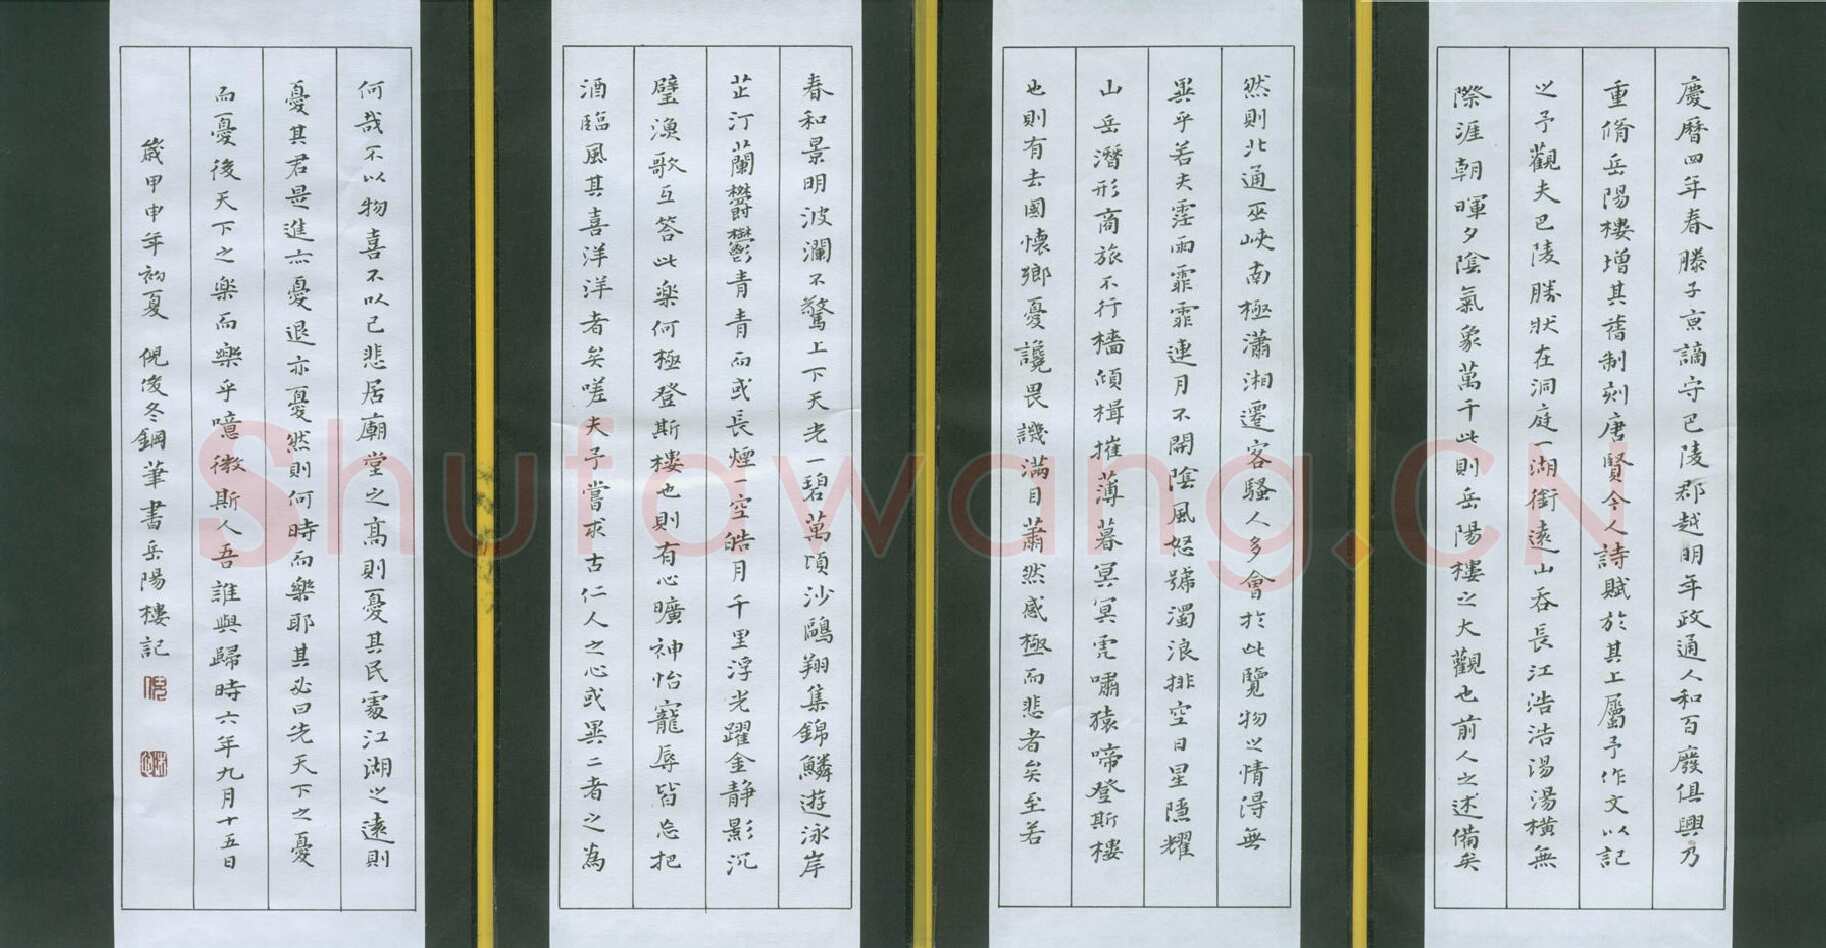 慶曆四年春滕子京謫守巴陵郡越明年政通人和百廢俱興乃
重脩岳陽樓增其舊制刻唐賢今人詩賦於其上屬予作文以記
之予觀夫巴陵勝狀在洞庭一湖銜遠山吞長江浩浩湯湯橫無
際涯朝暉夕陰氣象萬千此則岳陽樓之大觀也前人之述備矣
然則北通巫峽南極瀟湘遷客騷人多會於此覽物之情得無
異乎若夫霪雨霏霏連月不開陰風怒號濁浪排空日星隱耀
山岳潛形商旅不行檣傾楫摧薄暮冥冥虎嘯猿啼登斯樓
也則有去國懷鄉憂讒畏譏滿目蕭然感極而悲者矣至若
春和景明波瀾不驚上下天光一碧萬頃沙鷗翔集錦鱗遊泳岸
芷汀蘭欝鬱青青而或長煙一空皓月千里浮光躍金靜影沉
璧漁歌互答此楽何極登斯樓也則有心曠神怡寵辱皆忘把
酒臨風其喜洋洋者矣嗟夫予嘗求古仁人之心或異二者之為
何哉不以物喜不以己悲居廟堂之高則憂其民處江湖之遠則
憂其君是進亦憂退亦憂然則何時而樂耶其必曰先天下之憂
而憂後天下之楽而樂乎噫微斯人吾誰與歸時六年九月十五日
歲甲申年初夏 倪俊冬鋼筆書岳陽樓記
Shufawang.CN